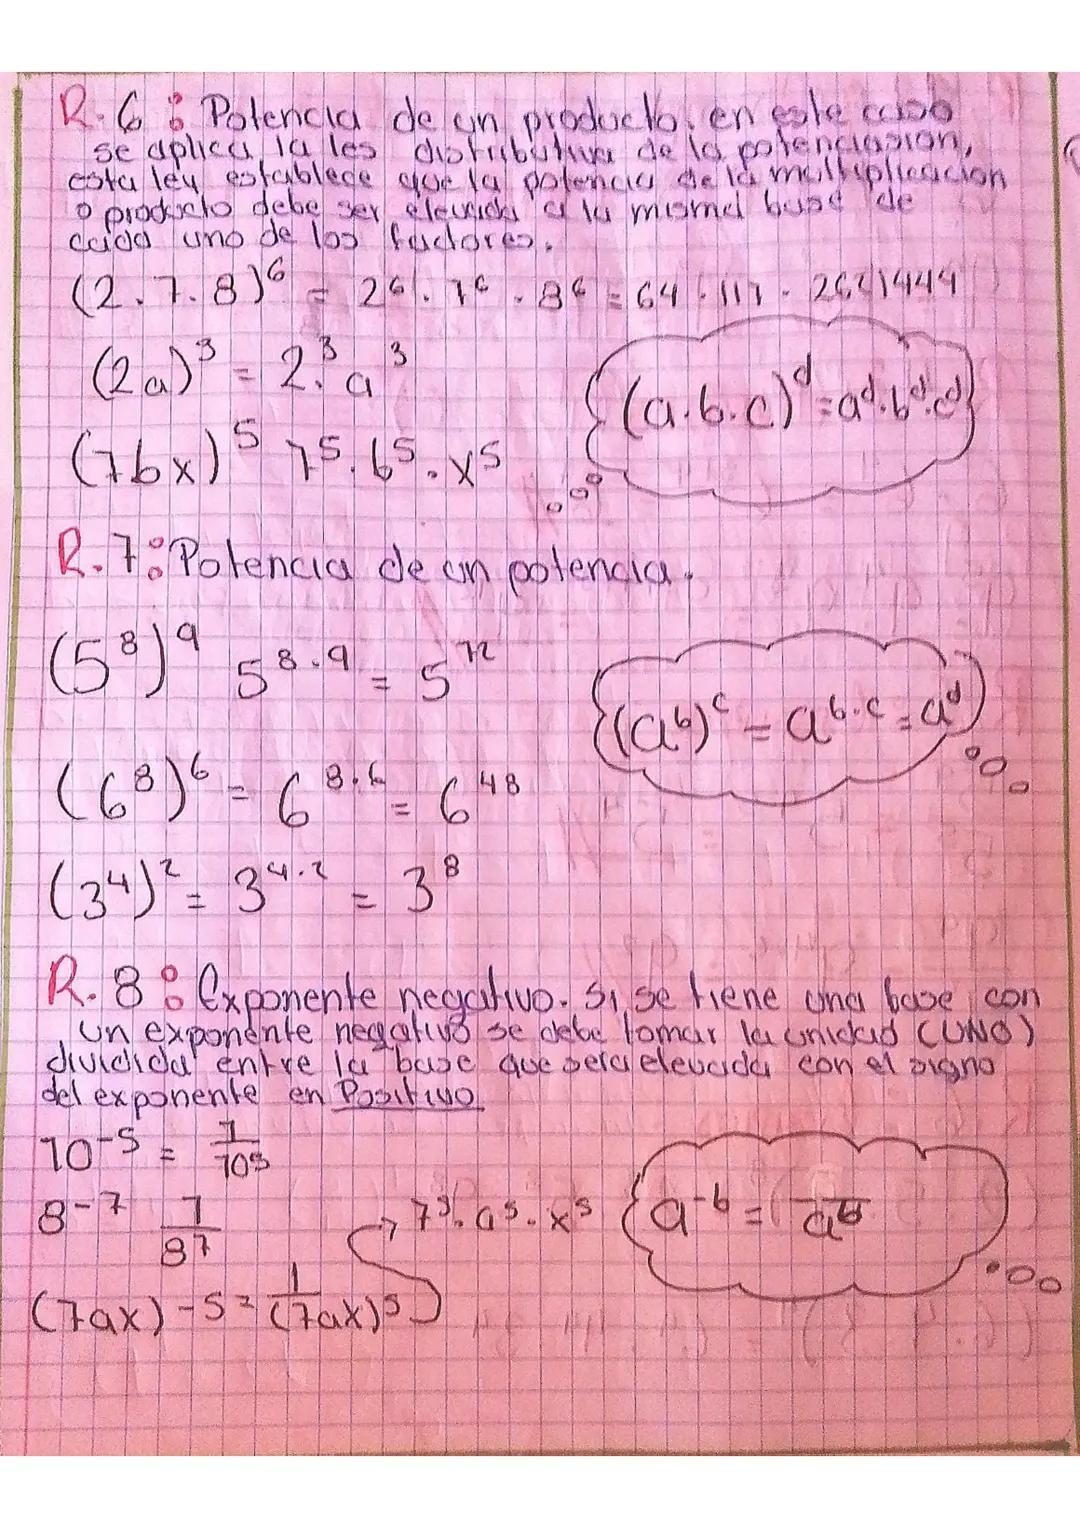 R.6: Potencia de un producto. en este caso
se aplica la les distributiva de la potenciasion,
esta ley establece que la potencia de la multiplicacion
o producto debe ser elevada a la misma base de
cada uno de los factores.
(2.7.8)⁶ = 2⁶.7⁶.8⁶ = 64.117.2621444
(2a)³ = 2³.a³
(a.b.c)ᵈ=aᵈ.bᵈ.cᵈ
(7bx)⁵ 7⁵.b⁵.x⁵
R.7: Potencia de un potencia.
(5⁸)⁹ 5⁸·⁹ = 5⁷²
(aᵇ)ᶜ = aᵇ·ᶜ = aᵈ
(6⁸)⁶ = 6⁸·⁶ = 6⁴⁸
(3⁴)² = 3⁴·² = 3⁸
R.8: Exponente negativo. Si se tiene una base con
un exponente negativo se debe tomar la unidad (UNO)
dividida entre la base que sera elevada con el signo
del exponente en Positivo
10⁻⁵ = 1/10⁵
8⁻⁷ 1/8⁷
7⁵.a⁵.x⁵
a⁻ᵇ = /aᵇ
(7ax)-5 = 1/(7ax)⁵